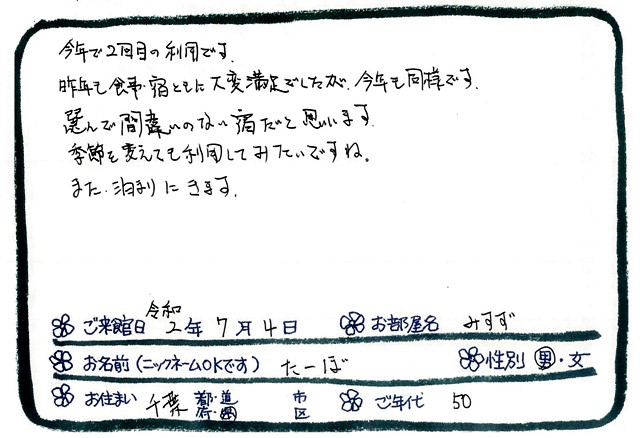 今年で2回目の利用です.
昨年も食事・宿ともに大変満足でしたが、今年も同様です.
選んで間違いのない宿だと思います.
季節を変えても利用してみたいですね。
また、泊まりにきます.
ご来館日 令和2年7月4日 お部屋名 みすず
お名前(ニックネームOKです) たーぼ 性別 男・女
お住まい 千葉 都・道 府・県 市 区 ご年代 50